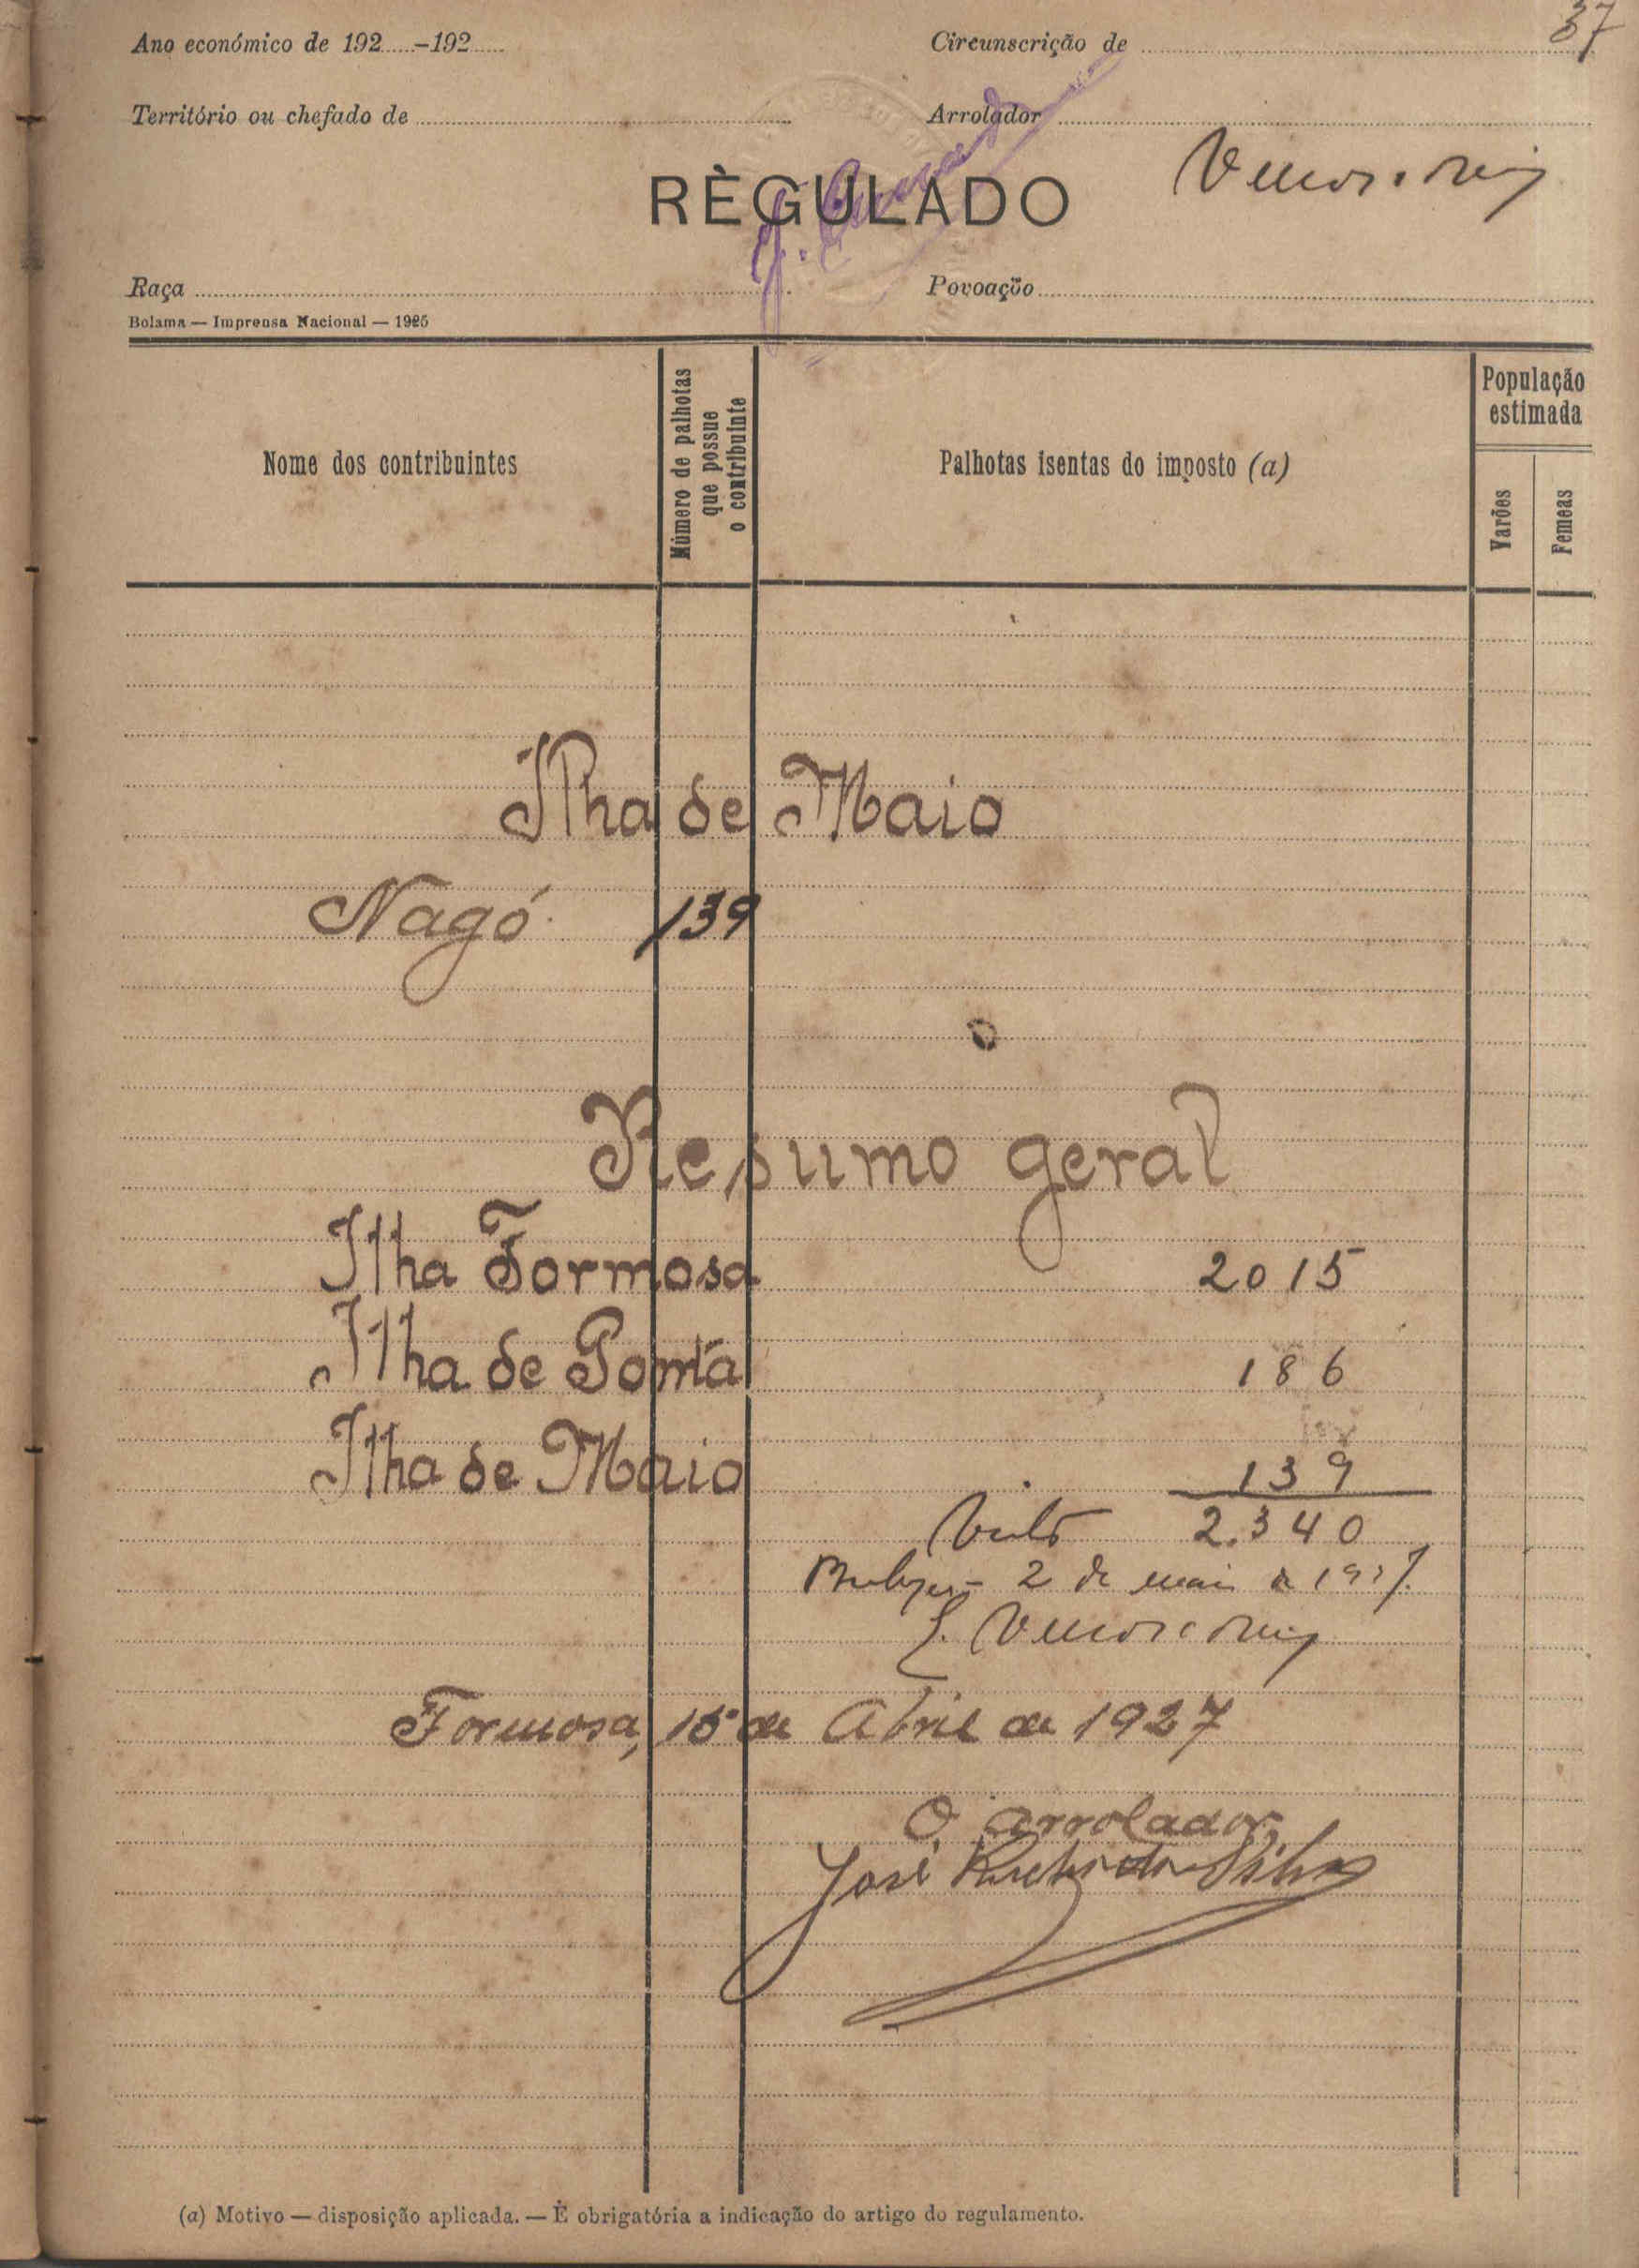 37
Ano económico de 192.....-192.....
Circunscrição de
Território ou chefado de
Arrolador
RÈGULADO
Raça
Povoação
Bolama — Imprensa Nacional — 1925
Nome dos contribuintes
Número de palhotas
que possue
o contribuinte
Palhotas isentas do imposto (a)
População
estimada
Varões
Femeas
Ilha de Maio
Nagó 139
Resumo geral
Ilha Formosa 2015
Ilha de Ponta 186
Ilha de Maio 139
Visto 2.340
2 de maio de 1927.
Formosa, 15 de Abril de 1927
O arrolador,
José Silva
(a) Motivo — disposição aplicada. — É obrigatória a indicação do artigo do regulamento.